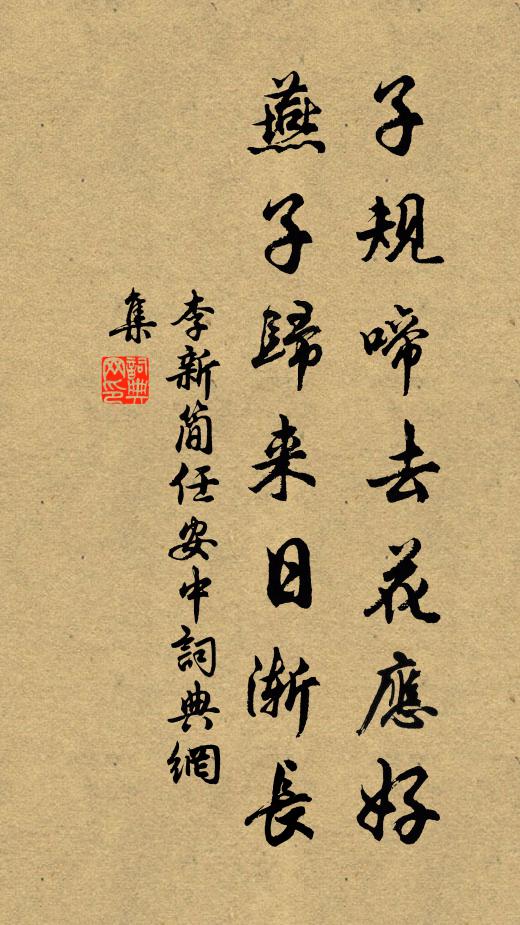 子規啼去花應好
燕子歸来日漸長
李新簡任安中詞典網
集
詞典网印